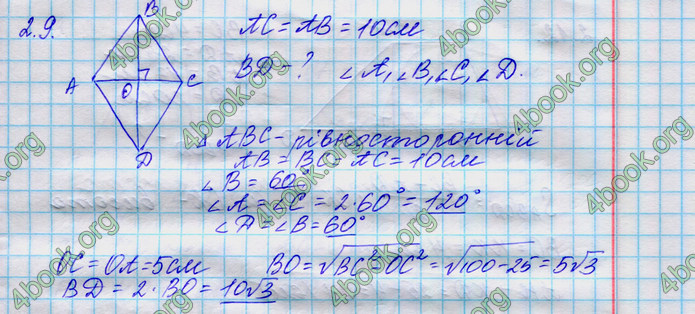 2.9.
B
A
O
C
D
AC = AB = 10 см
BD - ? ∠A, ∠B, ∠C, ∠D.
△ABC - рівносторонній
AB = BC = AC = 10 см
∠B = 60°
∠A = ∠C = 2·60° = 120°
∠D = ∠B = 60°
OC = OA = 5 см BO = √BC² - OC² = √100-25 = 5√3
BD = 2·BO = 10√3
4book.org
4book.org
4book.org
4book.org
4book.org
4book.org
4book.org
4book.org
4book.org
4book.org